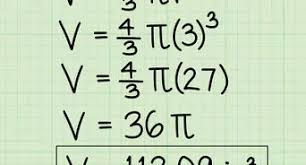 V = 4/3 π(3)³
V = 4/3 π(27)
V = 36 π
V =